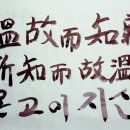 溫故而知新
新知而故溫
온고이지신